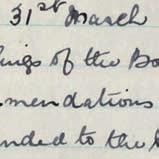 31st March
ings of the Bo
mendations
nded to the